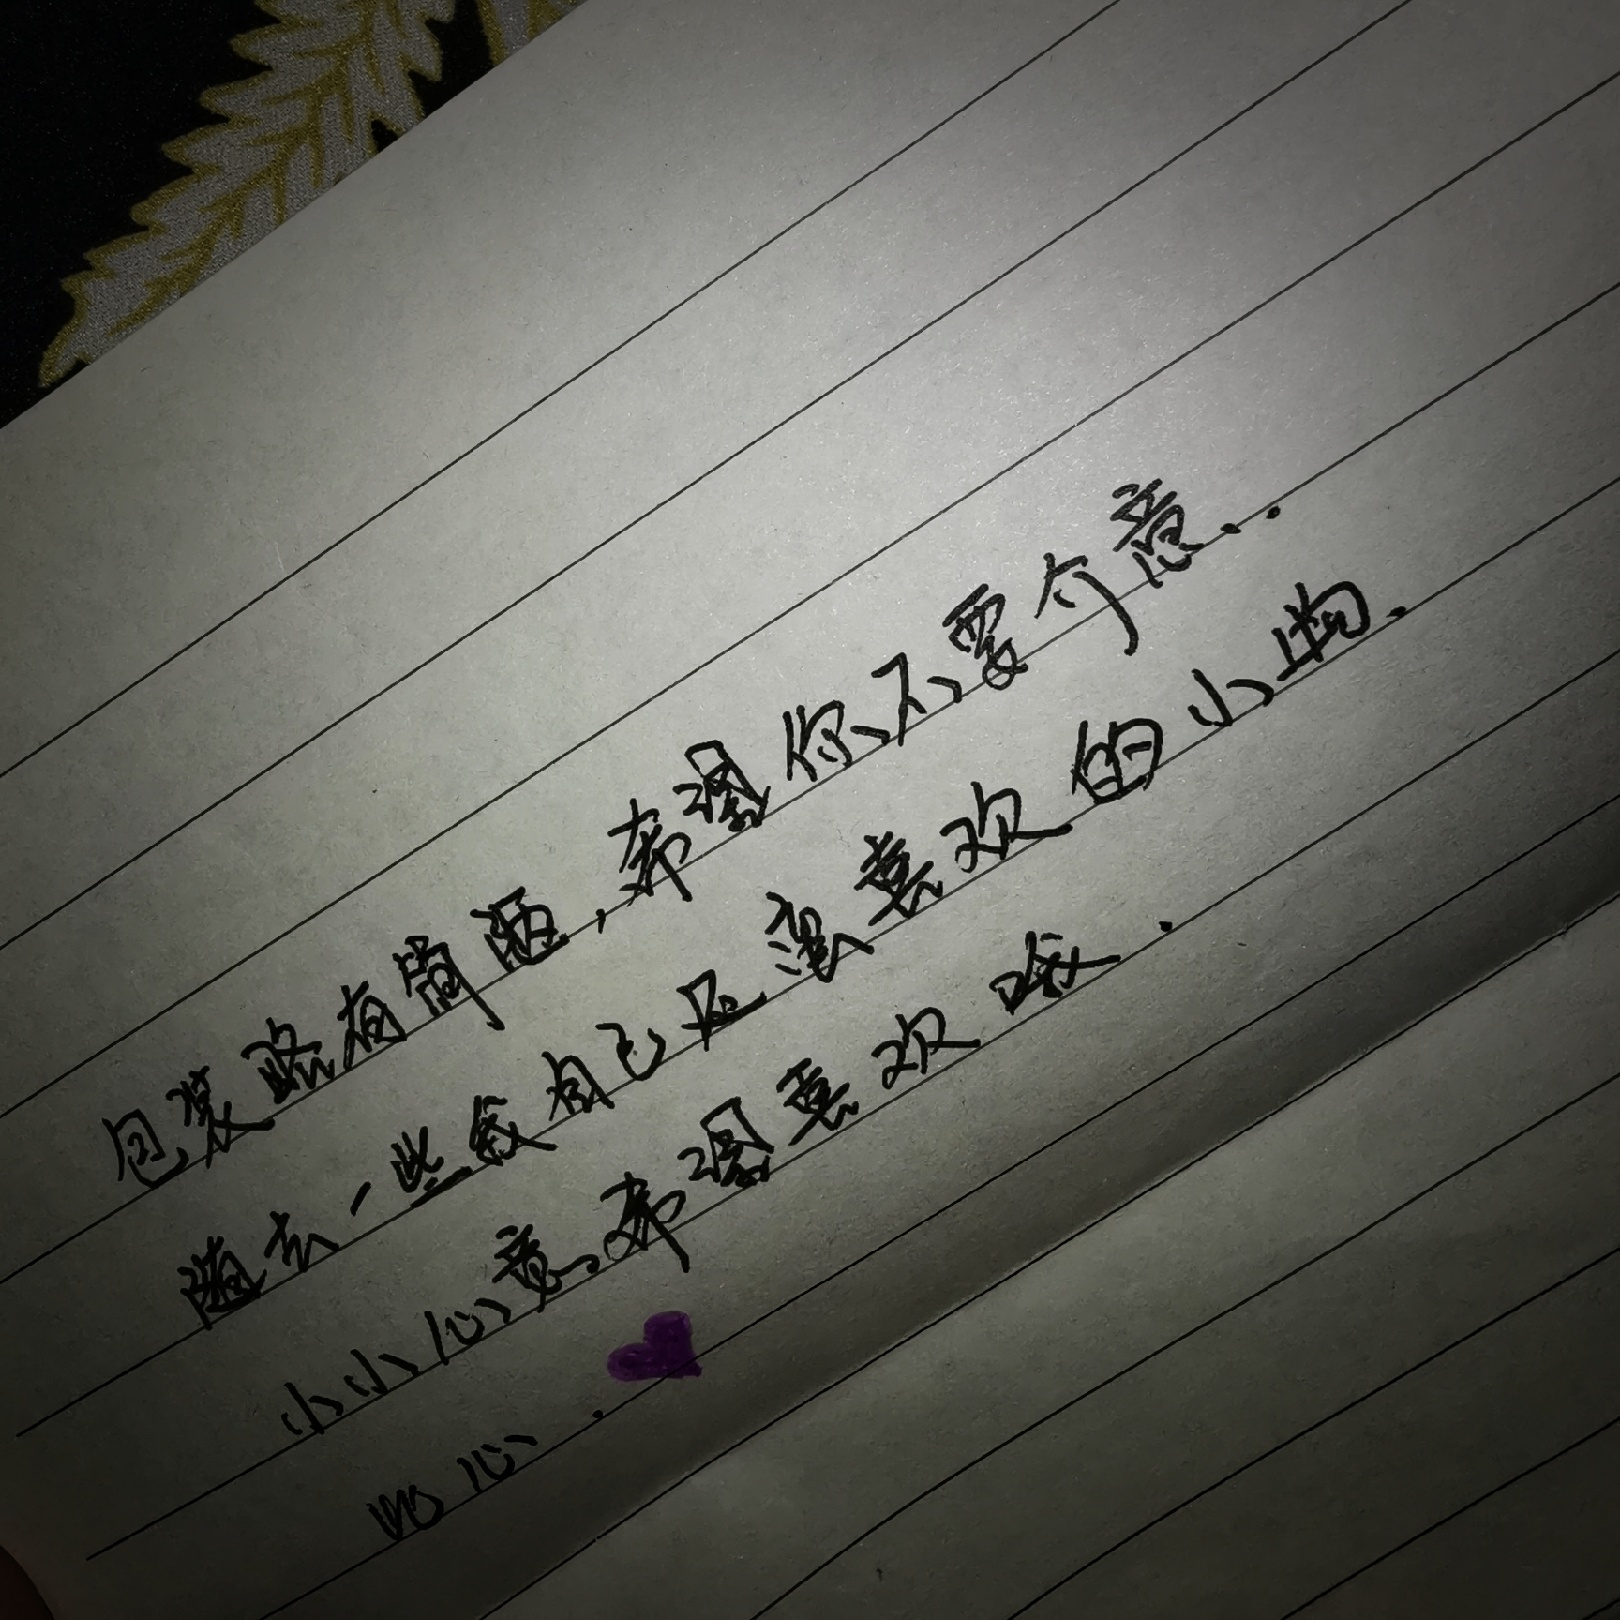 包装略有简陋,希望你不要介意..
随去一些我自己还蛮喜欢的小物.
小小心意,希望喜欢哦.
比心.